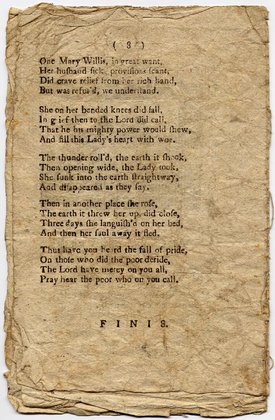 ( 8 )
One Mary Willis, in great want,
Her husband sick, provisions scant,
Did crave relief from her rich hand,
But was refus'd, we understand.
She on her bended knees did fall,
In grief then to the Lord did call,
That he his mighty power would shew,
And fill this Lady's heart with woe.
The thunder roll'd, the earth it shook,
Then opening wide, the Lady took,
She sunk into the earth straightway,
And disappeared as they say.
Then in another place she rose,
The earth it threw her up, did close,
Three days she languish'd on her bed,
And then her soul away it fled.
Thus have you heard the fall of pride,
On those who did the poor deride,
The Lord have mercy on you all,
Pray hear the poor who on you call.
F I N I S.